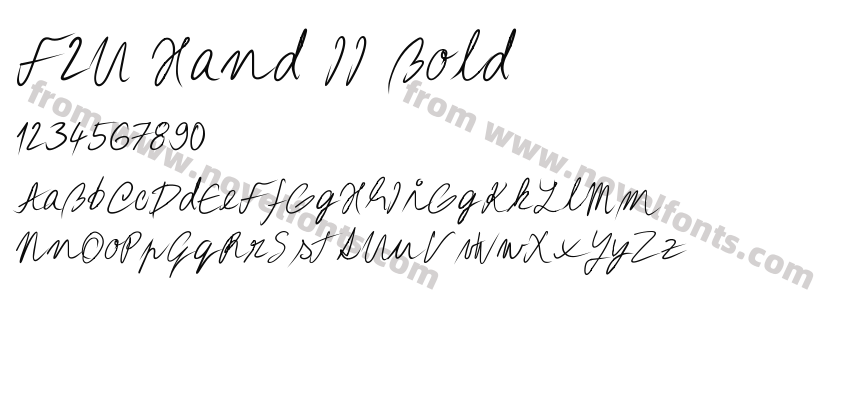 FZU Hand II Bold
from www.novelfonts.com
from www.novelfonts.com
1234567890
AaBbCcDdEeFfGgHhIiGgKkLlMm
NnOoPpQqRrSstSUuuVvWwXxYyZz